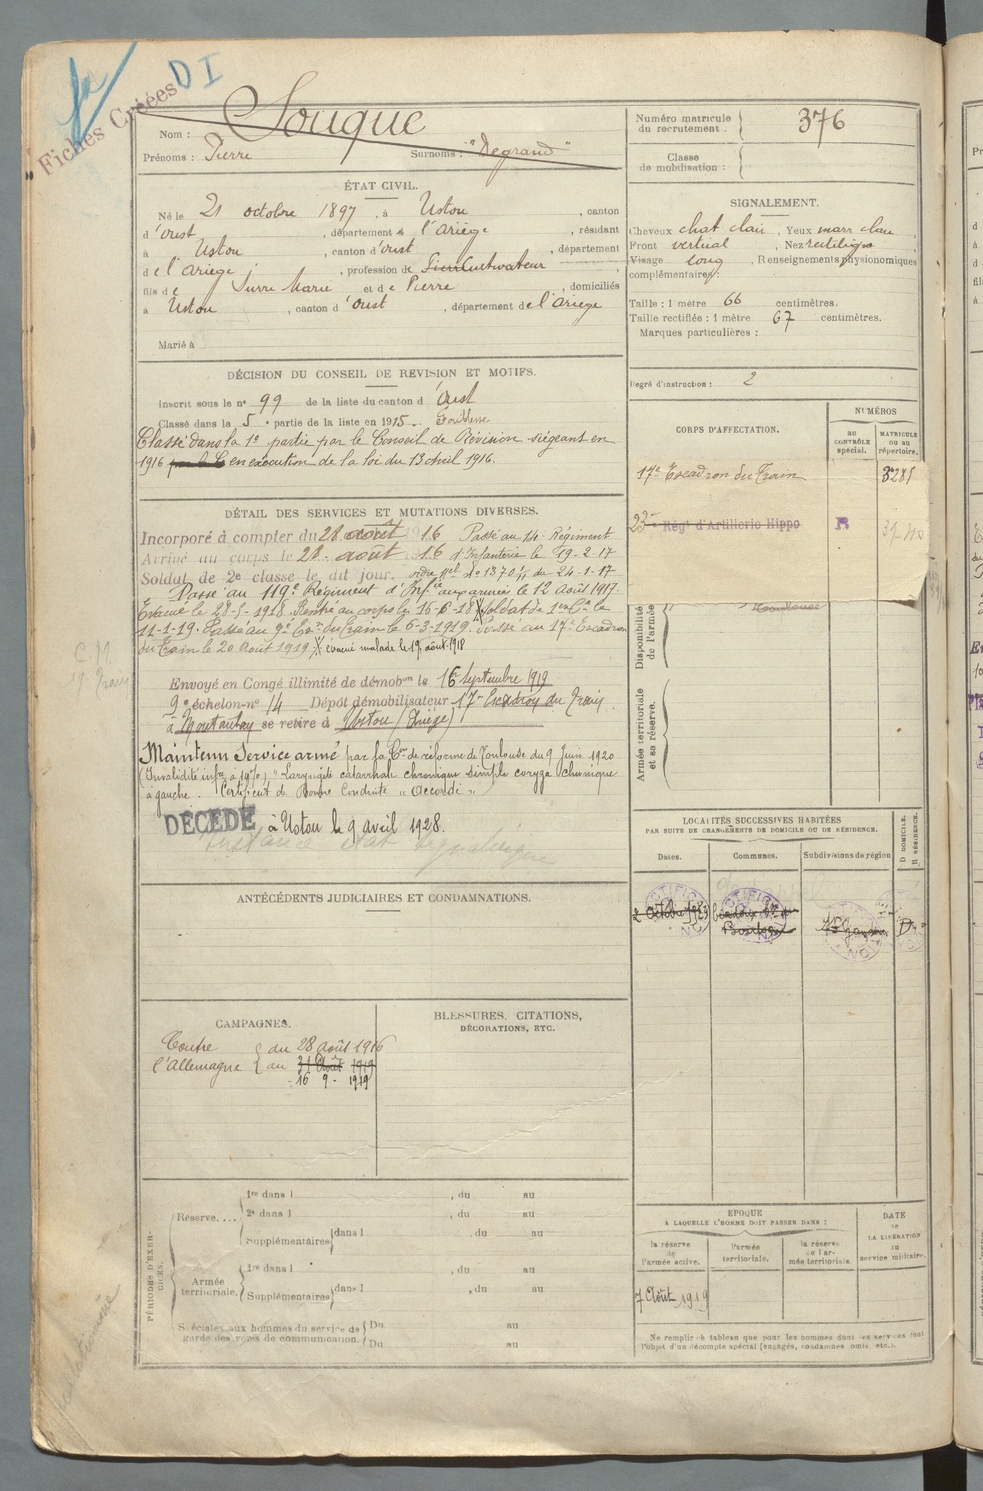 Fiches Créées
DI
Nom : Souque
Prénoms : Pierre Surnoms : "Degrand"
Numéro matricule du recrutement. 376
Classe de mobilisation :
ÉTAT CIVIL.
Né le 21 octobre 1897, à Ustou, canton
d'oust, département de l'Ariège, résidant
à Ustou, canton d'oust, département
de l'Ariège, profession de cultivateur
fils de Marie et de Pierre, domiciliés
à Ustou, canton d'oust, département de l'Ariège
Marié à
SIGNALEMENT.
Cheveux chat clair, Yeux marr clair,
Front vertical, Nez rectiligne
Visage long, Renseignements physionomiques
complémentaires:
Taille : 1 mètre 66 centimètres.
Taille rectifiée : 1 mètre 67 centimètres.
Marques particulières :
Degré d'instruction : 2
DÉCISION DU CONSEIL DE REVISION ET MOTIFS.
Inscrit sous le n° 99 de la liste du canton d'Oust
Classé dans la 5e partie de la liste en 1915. Faiblesse
Classé dans la 1e partie par le Conseil de Révision siégeant en
1916 en exécution de la loi du 13 avril 1916.
DÉTAIL DES SERVICES ET MUTATIONS DIVERSES.
Incorporé à compter du 28 août 1916 Passé au 14e Régiment
Arrivé au corps le 28 août 16 d'Infanterie le 19-2-17
Soldat de 2e classe le dit jour. ordre No 1370 du 24-1-17
Passé au 119e Régiment d'Infie aux armées le 12 Août 1917.
Evacué le 28-5-1918. Rentré au corps le 16-6-18 X Soldat de 1re Cl. le
11-1-19. Passé au 9e Eson du Train le 6-3-1919. Passé au 17e Escadron
du Train le 20 Août 1919 X évacué malade le 19 août 1918
Envoyé en Congé illimité de démobon le 16 Septembre 1919
9e échelon-n° 14 Dépôt démobilisateur 17e Escadron du Train
à Montauban se retire à Ustou (Ariège)
Maintenu Service armé par la Con de réforme de Toulouse du 9 Juin 1920
(Invalidité infre à 10%) "Laryngite catarrhale chronique simple coryza chronique
à gauche. Certificat de Bonne Conduite "Accordé"
DÉCÉDÉ à Ustou le 9 avril 1928.
CORPS D'AFFECTATION.
NUMÉROS
AU CONTRÔLE spécial.
MATRICULE OU AU répertoire.
17e Escadron du Train 3281
23e Régt d'Artillerie Hippo R
Disponibilité de l'armée
Armée territoriale et sa réserve.
LOCALITÉS SUCCESSIVES HABITÉES
PAR SUITE DE CHANGEMENTS DE DOMICILE OU DE RÉSIDENCE.
Dates. Communes. Subdivisions de région
D DOMICILE. R RÉSIDENCE.
2 Octobre 1923 D
ANTÉCÉDENTS JUDICIAIRES ET CONDAMNATIONS.
CAMPAGNES.
Contre du 28 août 1916
l'Allemagne au 31 Août 1919
16 9 - 1919
BLESSURES, CITATIONS,
DÉCORATIONS, ETC.
PÉRIODES D'EXERCICES.
Réserve....
1re dans l , du au
2e dans l , du au
Supplémentaires dans l , du au
Armée territoriale.
1re dans l , du au
Supplémentaires dans l , du au
Spéciales aux hommes du service de garde des voies de communication.
Du au
Du au
EPOQUE
A LAQUELLE L'HOMME DOIT PASSER DANS :
la réserve de l'armée active.
l'armée territoriale.
la réserve de l'armée territoriale.
DATE de LA LIBÉRATION du service militaire.
7 Août 1919
Ne remplir ce tableau que pour les hommes dont les services font
l'objet d'un décompte spécial (engagés, condamnés, omis, etc.).